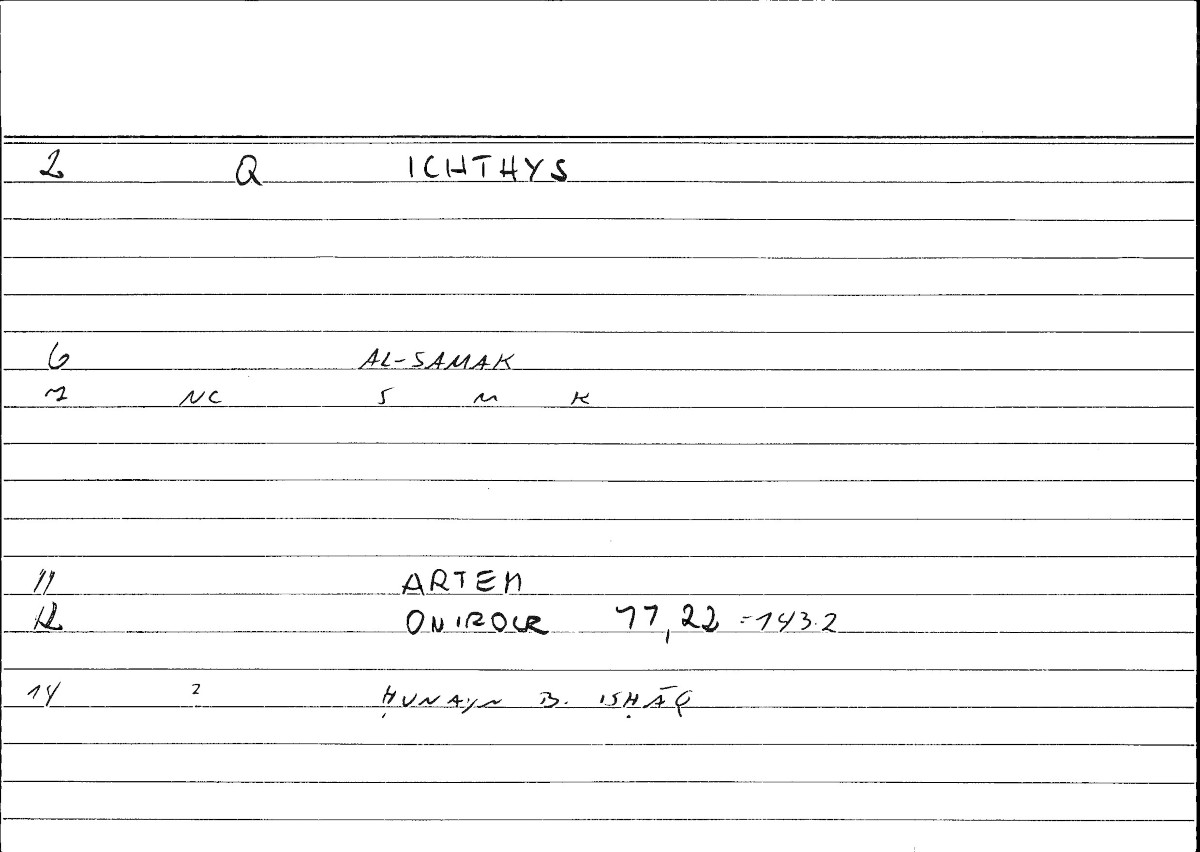 2 Q ICHTHYS
6 AL-SAMAK
7 NC S M K
11 ARTEM
12 ONIROCR 77,22 =143.2
14 2 ḤUNAYN B. ISḤĀQ